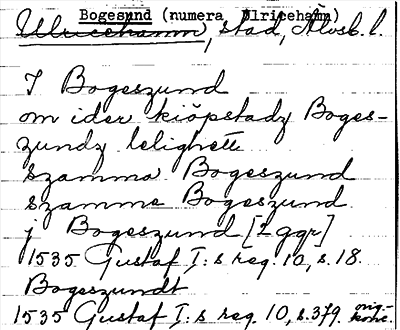 Bogesund (numera Ulricehamn)
Ulricehamn, stad, Älvsb. l.
I Bogeszund
om ider kiöpstadz Boges-
zundz lelighett
szamma Bogeszund
szamme Bogeszund
j Bogeszund [2 ggr]
1535 Gustaf I:s reg. 10, s. 18.
Bogeszundt
1535 Gustaf I:s reg. 10, s. 379 orig.-
konc.